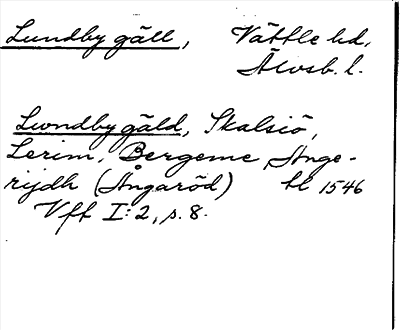 Lundby gäll, Vättle hd,
Älvsb. l.
Lwndby gäld, Skalsiö,
Lerim, Bergeme, Ange-
rijdh (Ångaröd) hl 1546
Vff I:2, s. 8.